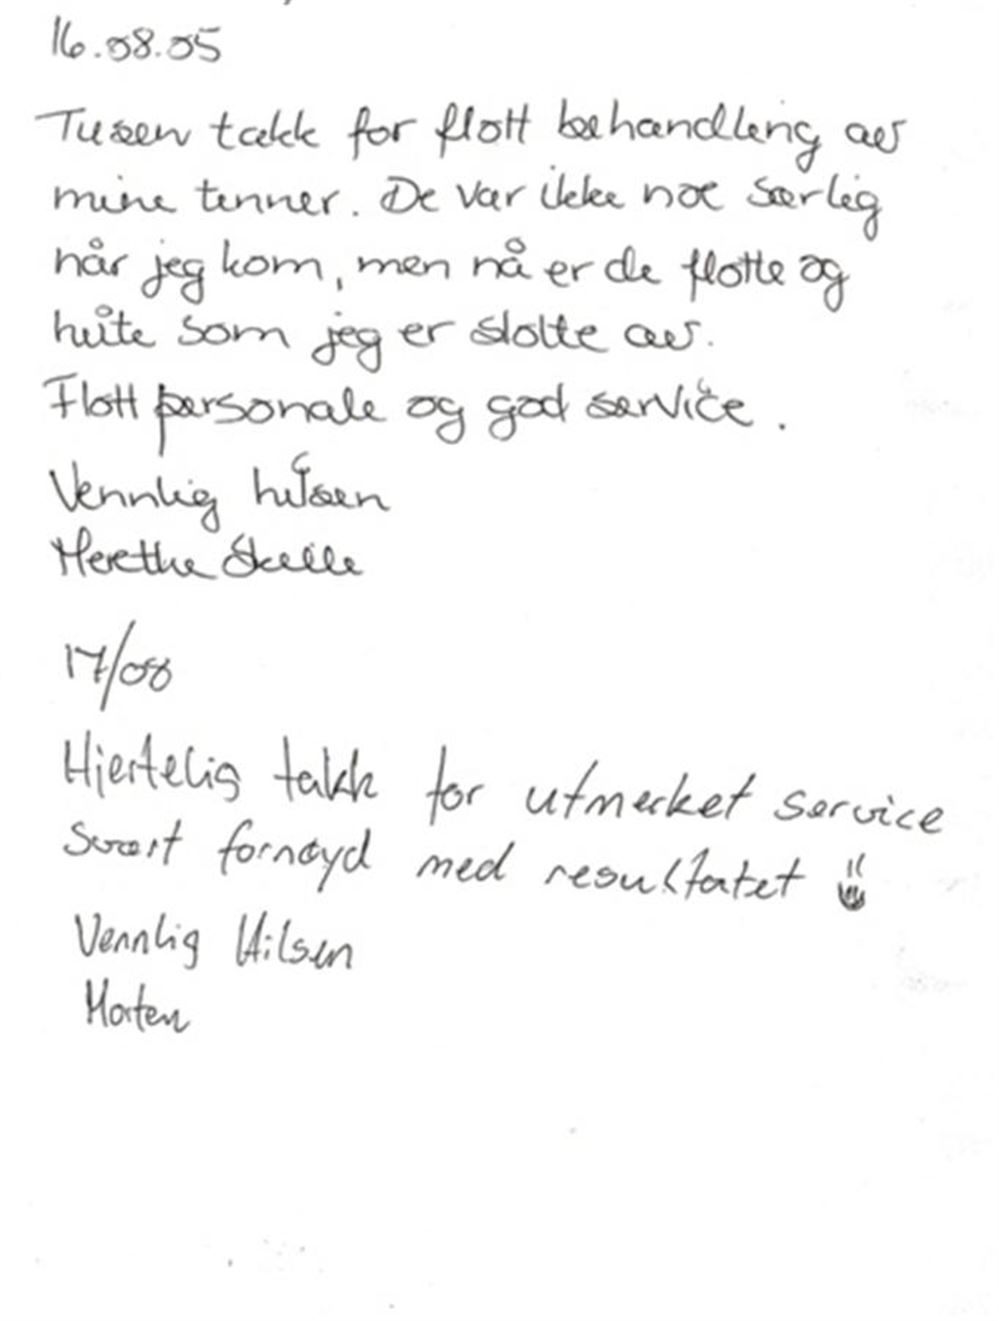 16.08.05
Tusen takk for flott behandling av
mine tenner. De var ikke noe særlig
når jeg kom, men nå er de flotte og
hvite som jeg er stolte av.
Flott personale og god service.
Vennlig hilsen
Merethe
17/08
Hjertelig takk for utmerket service
Svært fornøyd med resultatet
Vennlig Hilsen
Morten